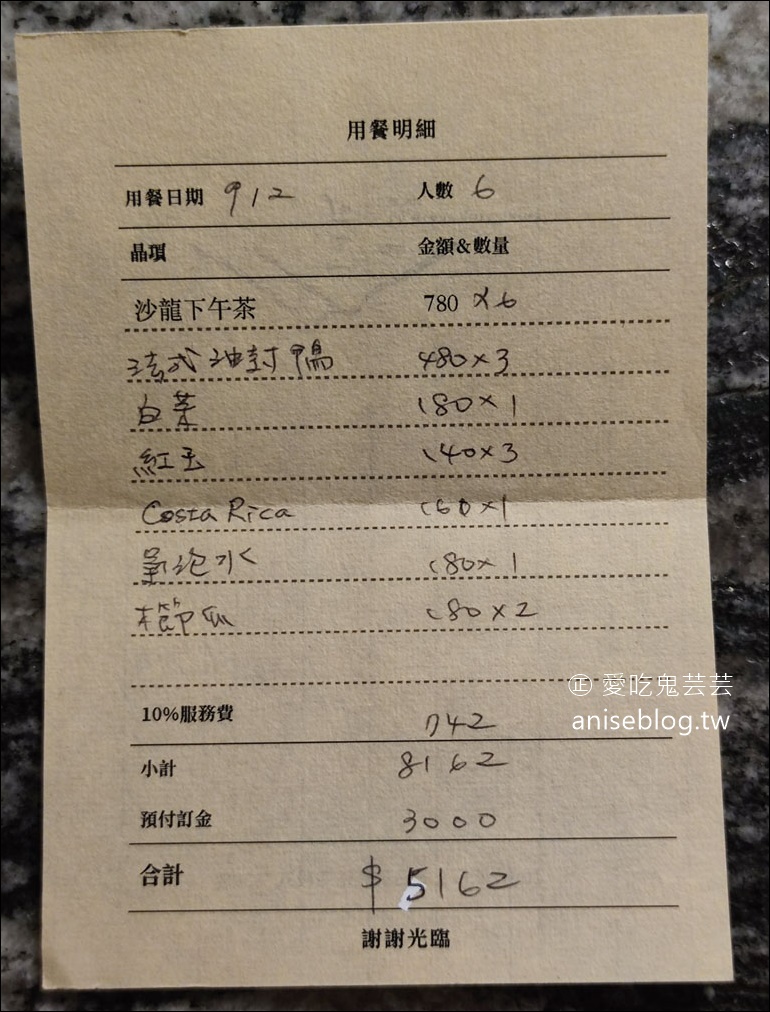 用餐明細
用餐日期 912 人數 6
品項 金額&數量
沙龍下午茶 780 x6
法式油封鴨 480x3
白茶 180x1
紅玉 140x3
Costa Rica 160x1
氣泡水 180x1
櫛瓜 180x2
正 愛吃鬼芸芸
aniseblog.tw
10%服務費 742
小計 8162
預付訂金 3000
合計 $5162
謝謝光臨